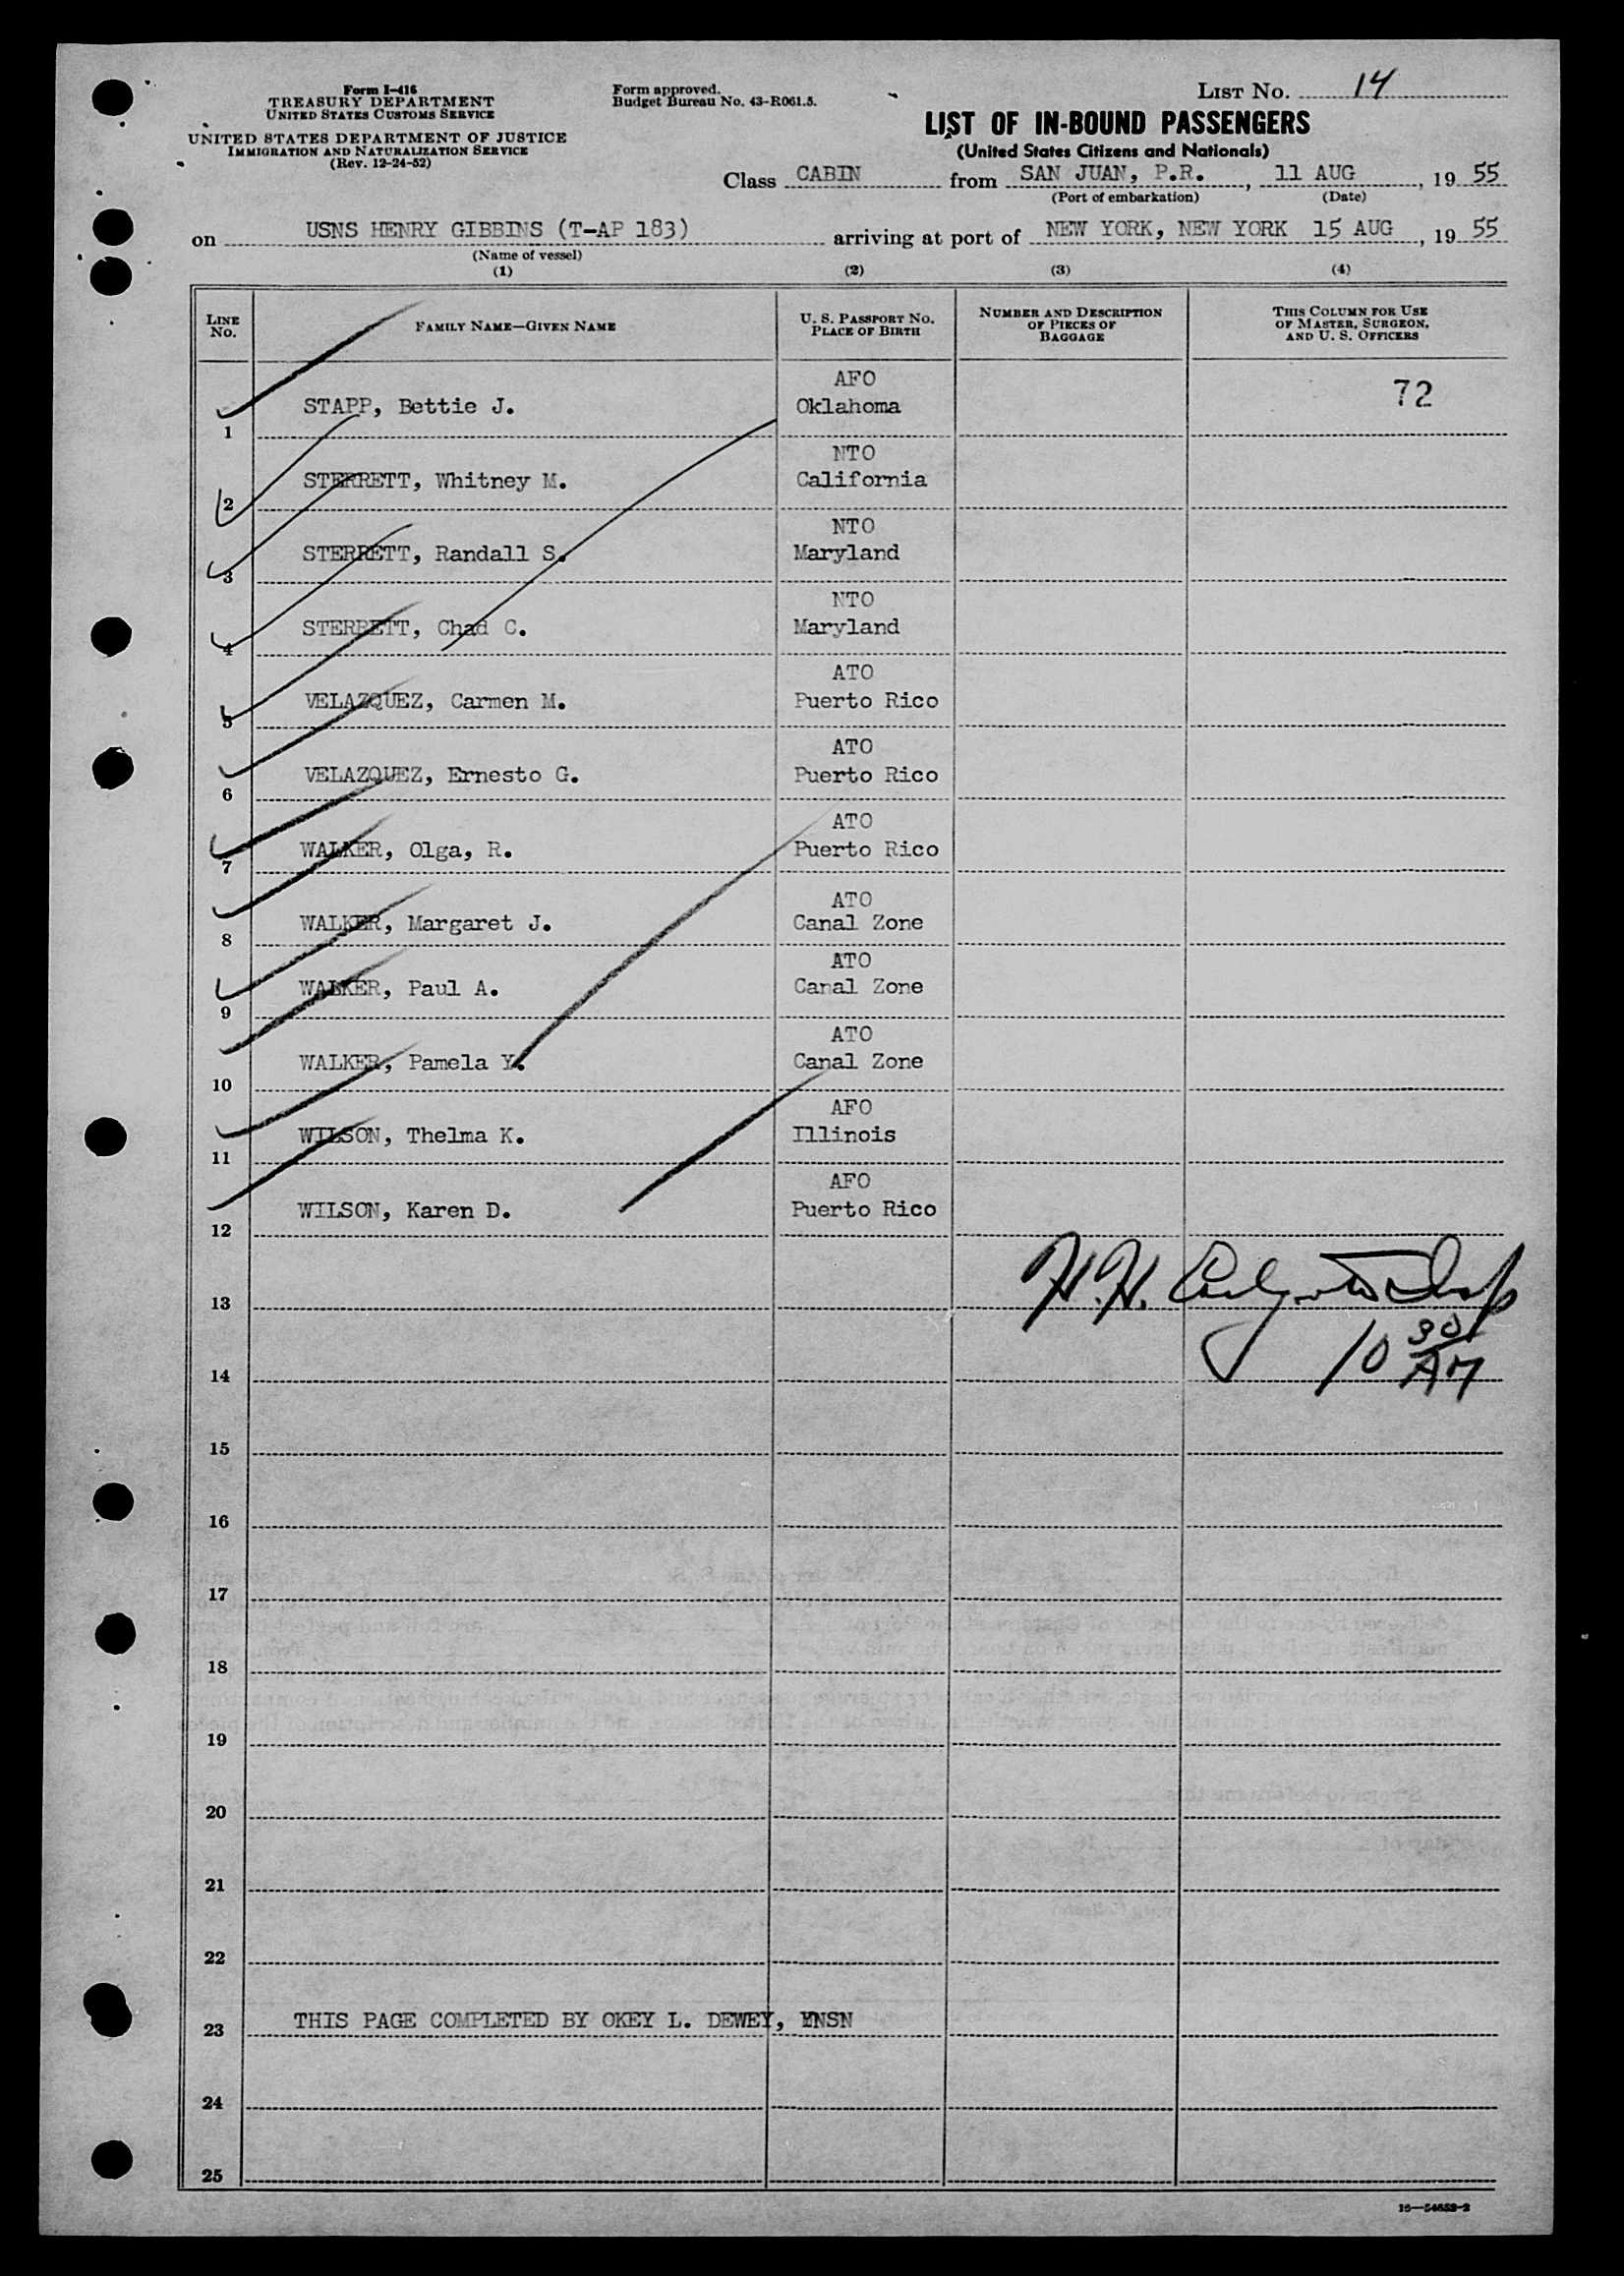 Form I-416
TREASURY DEPARTMENT
UNITED STATES CUSTOMS SERVICE
UNITED STATES DEPARTMENT OF JUSTICE
IMMIGRATION AND NATURALIZATION SERVICE
(Rev. 12-24-52)
Form approved.
Budget Bureau No. 43-R061.5.
LIST NO. 14
LIST OF IN-BOUND PASSENGERS
(United States Citizens and Nationals)
Class CABIN from SAN JUAN, P.R., 11 AUG, 19 55
(Port of embarkation) (Date)
on USNS HENRY GIBBINS (T-AP 183) arriving at port of NEW YORK, NEW YORK 15 AUG, 19 55
(Name of vessel)
(1) (2) (3) (4)
LINE NO. FAMILY NAME—GIVEN NAME U. S. PASSPORT NO. PLACE OF BIRTH NUMBER AND DESCRIPTION OF PIECES OF BAGGAGE THIS COLUMN FOR USE OF MASTER, SURGEON, AND U. S. OFFICERS
AFO
1 STAPP, Bettie J. Oklahoma 72
NTO
2 STERRETT, Whitney M. California
NTO
3 STERRETT, Randall S. Maryland
NTO
4 STERRETT, Chad C. Maryland
ATO
5 VELAZQUEZ, Carmen M. Puerto Rico
ATO
6 VELAZQUEZ, Ernesto G. Puerto Rico
ATO
7 WALKER, Olga, R. Puerto Rico
ATO
8 WALKER, Margaret J. Canal Zone
ATO
9 WALKER, Paul A. Canal Zone
ATO
10 WALKER, Pamela Y. Canal Zone
AFO
11 WILSON, Thelma K. Illinois
AFO
12 WILSON, Karen D. Puerto Rico
13 H.H.
14 10 30 AM
15
16
17
18
19
20
21
22
23 THIS PAGE COMPLETED BY OKEY L. DEWEY, YNSN
24
25
16—54652-2